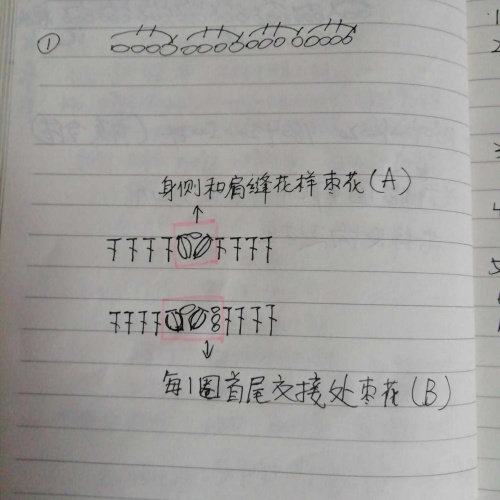 ①
身侧和肩缝花样枣花(A)
每1圈首尾交接处枣花(B)